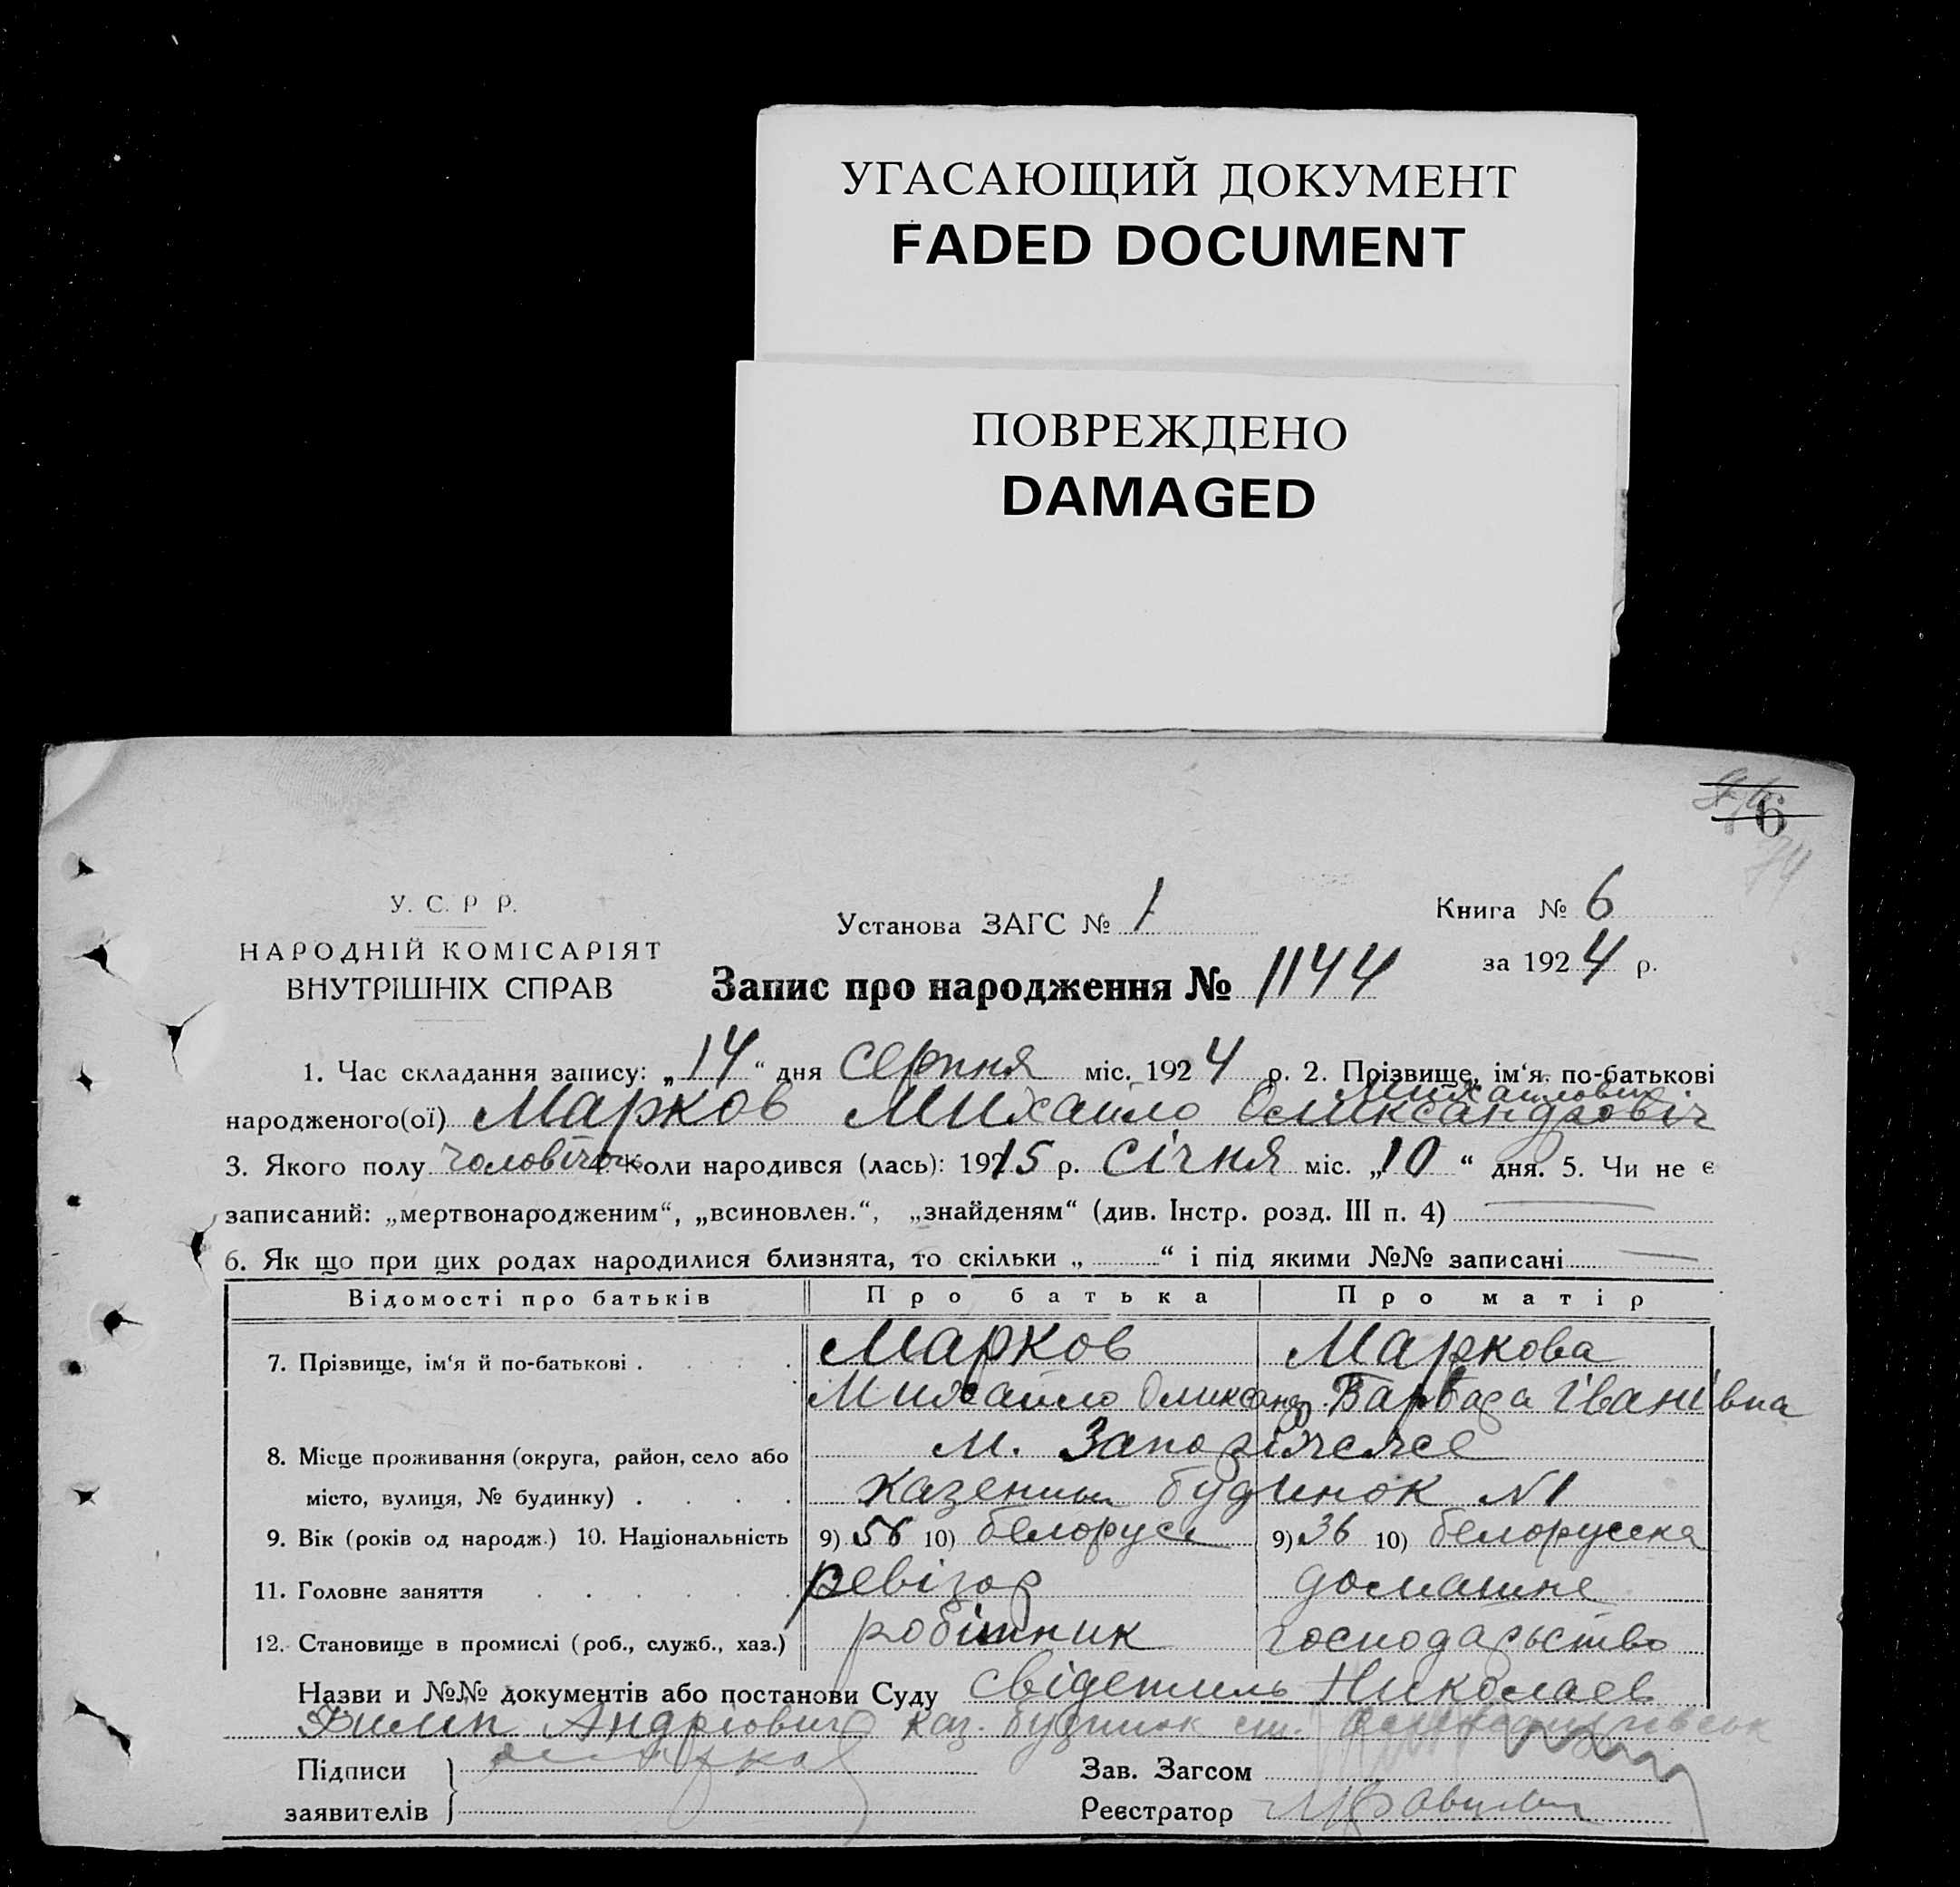 УГАСАЮЩИЙ ДОКУМЕНТ
FADED DOCUMENT
ПОВРЕЖДЕНО
DAMAGED
6
74
У. С. Р Р.
НАРОДНІЙ КОМІСАРІЯТ
ВНУТРІШНІХ СПРАВ
Установа ЗАГС № 1
Книга № 6
за 1924 р.
Запис про народження № 1144
1. Час складання запису: „14“ дня серпня міс. 1924 р. 2. Прізвище, ім‘я, по-батькові
Михайлович
народженого(ої) Марков Михайло Олександровіч
3. Якого полу чоловічої 4. Коли народився (лась): 1915 р. Січня міс. „10“ дня. 5. Чи не є
записаний: „мертвонародженим“, „всиновлен.“, „знайденям“ (див. Інстр. розд. III п. 4)
6. Як що при цих родах народилися близнята, то скільки „ “ і під якими №№ записані
Відомості про батьків Про батька Про матір
7. Прізвище, ім‘я й по-батькові . . . . Марков Маркова
Михайло Олександ. Варвара Іванівна
8. Місце проживання (округа, район, село або м. Запоріжжє
місто, вулиця, № будинку) . . . . казений будинок N1
9. Вік (років од народж.) 10. Національність 9) 56 10) белорус 9) 36 10) белорусска
11. Головне заняття . . . . . . ревізор домашне
12. Становище в промислі (роб., служб., хаз.) робітник господарьство
Назви и №№ документів або постанови Суду свідетиль Николаев
Филип Андріович каз. будинок ст.
Підписи
заявителів
Зав. Загсом
Реєстратор